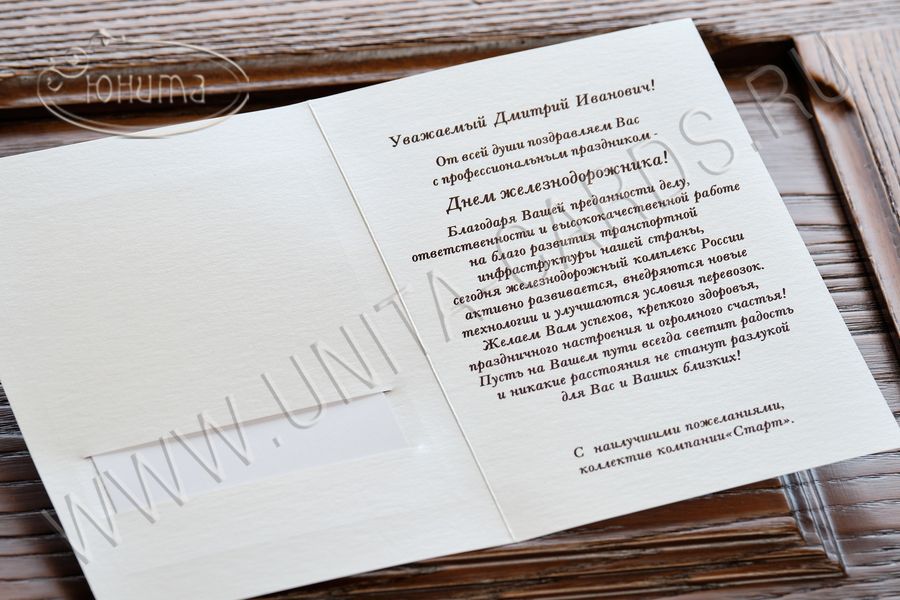 Юнита
Уважаемый Дмитрий Иванович!
От всей души поздравляем Вас
с профессиональным праздником -
Днем железнодорожника!
Благодаря Вашей преданности делу,
ответственности и высококачественной работе
на благо развития транспортной
инфраструктуры нашей страны,
сегодня железнодорожный комплекс России
активно развивается, внедряются новые
технологии и улучшаются условия перевозок.
Желаем Вам успехов, крепкого здоровья,
праздничного настроения и огромного счастья!
Пусть на Вашем пути всегда светит радость
и никакие расстояния не станут разлукой
для Вас и Ваших близких!
С наилучшими пожеланиями,
коллектив компании«Старт».
WWW.UNITA-CARDS.RU